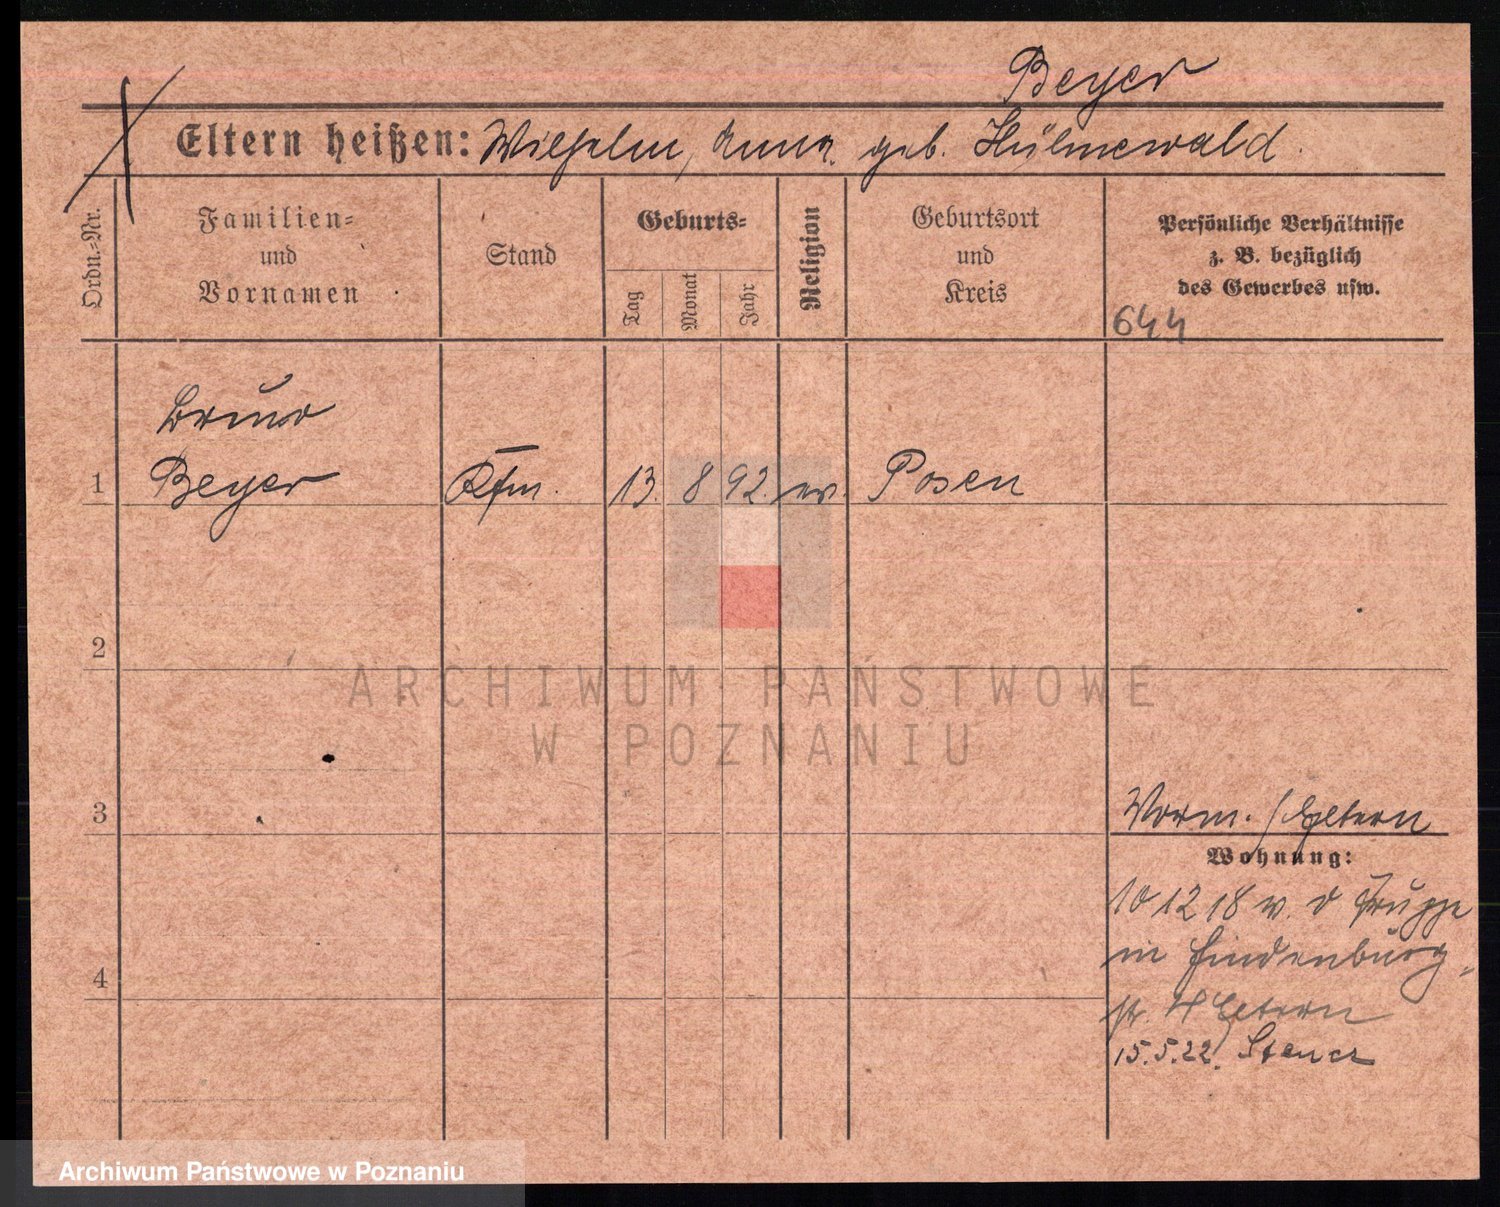 Beyer
Eltern heißen: Wilhelm, Anna. geb. Hülmewald.
Ordn.=Nr.
Familien=
und
Vornamen
Stand
Geburts=
Tag
Monat
Jahr
Religion
Geburtsort
und
Kreis
Persönliche Verhältnisse
z. B. bezüglich
des Gewerbes usw.
644
Bruno
1 Beyer Kfm. 13. 8 92. ev. Posen
2
ARCHIWUM PAŃSTWOWE
W POZNANIU
3
Eltern
Wohnung:
10 12 18 v. d Truppe
in Hindenburg
str. Eltern
15.5.22.
4
Archiwum Państwowe w Poznaniu